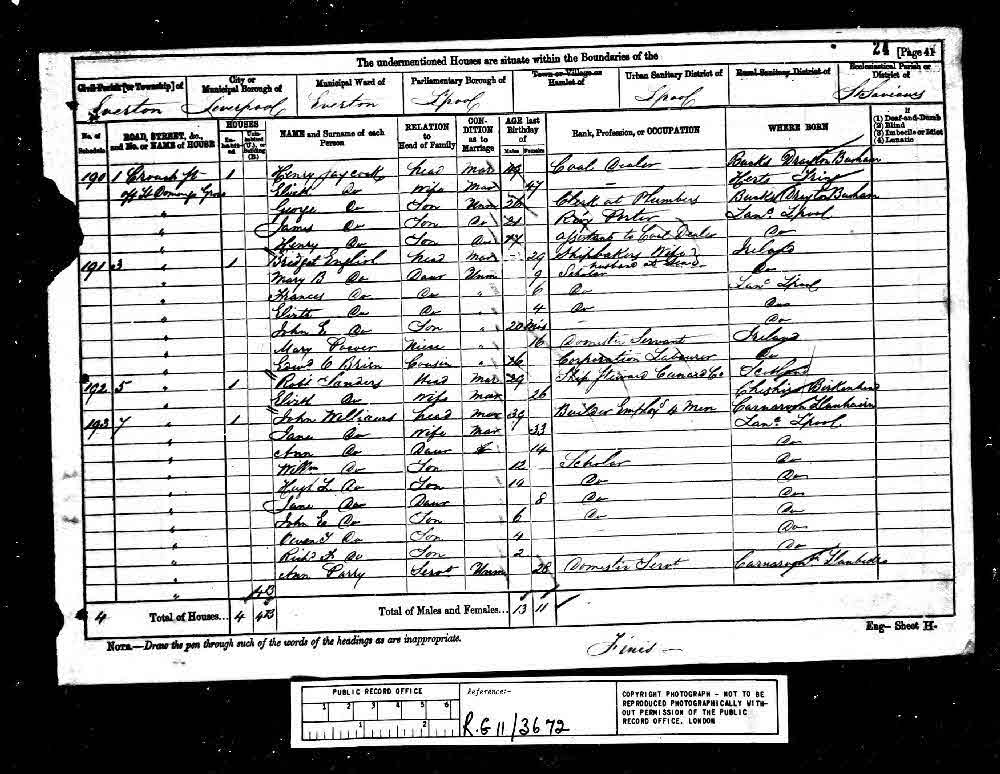 24 [Page 41
The undermentioned Houses are situate within the Boundaries of the
Civil Parish [or Township] of
City or Municipal Borough of
Municipal Ward of
Parliamentary Borough of
Town or Village or Hamlet of
Urban Sanitary District of
Rural Sanitary District of
Ecclesiastical Parish or District of
Everton Liverpool Everton Lpool Lpool St Saviours
No. of Schedule
ROAD, STREET, &c., and No. or NAME of HOUSE
HOUSES
Inhabited
Uninhabited (U.), or Building (B.)
NAME and Surname of each Person
RELATION to Head of Family
CONDITION as to Marriage
AGE last Birthday of
Males Females
Rank, Profession, or OCCUPATION
WHERE BORN
If
(1) Deaf-and-Dumb
(2) Blind
(3) Imbecile or Idiot
(4) Lunatic
190 1 Crouch St 1 Henry Head Mar 49 Coal Dealer Bucks Drayton Busham
off St Domingo Grove Elizth Do Wife Mar 47 Herts Tring
" George Do Son Unm Clerk at Plumbers Bucks Drayton Busham
" James Do Son Do 21 Rly Porter Lanc. Lpool
" Henry Do Son Do 17 Assistant to Coal Dealer Do
191 3 " 1 Bridget English Head Mar 29 Shipbakers Wife Ireland
husband at Sea
" Mary B Do Daur Unm 9 Scholar Do
" Frances Do Do " 6 Do Lanc Lpool
" Elizth Do Do " 4 Do Do
" John E Do Son " 20 Mos Do
" Mary Power Niece " 16 Domestic Servant Ireland
" Edwd O Brien Cousin " 26 Corporation Labourer Do
192 5 " 1 Robt Sanders Head Mar 29 Ship Steward Cunard Co Scotland
" Elizth Do Wife Mar 26 Cheshire Birkenhead
193 7 " 1 John Williams Head Mar 39 Builder Employg 4 Men Carnarvon
" Jane Do Wife Mar 33 Lanc. Lpool
" Ann Do Daur 14 Do
" Willm Do Son 12 Scholar Do
" Hugh L Do Son 10 Do Do
" Jane Do Daur 8 Do Do
" John E Do Son 6 Do Do
" Owen T Do Son 4 Do
" Richd F Do Son 2 Do
" Ann Parry Servt Unm 28 Domestic Servt Carnarvon Llanberis
4 Total of Houses... 4 Total of Males and Females... 13 11
NOTE.—Draw the pen through such of the words of the headings as are inappropriate.
Eng— Sheet H-
Finis —
PUBLIC RECORD OFFICE
1 2 3 4 5 6
1 2
Reference:-
R.G 11/3672
COPYRIGHT PHOTOGRAPH - NOT TO BE
REPRODUCED PHOTOGRAPHICALLY WITH-
OUT PERMISSION OF THE PUBLIC
RECORD OFFICE, LONDON